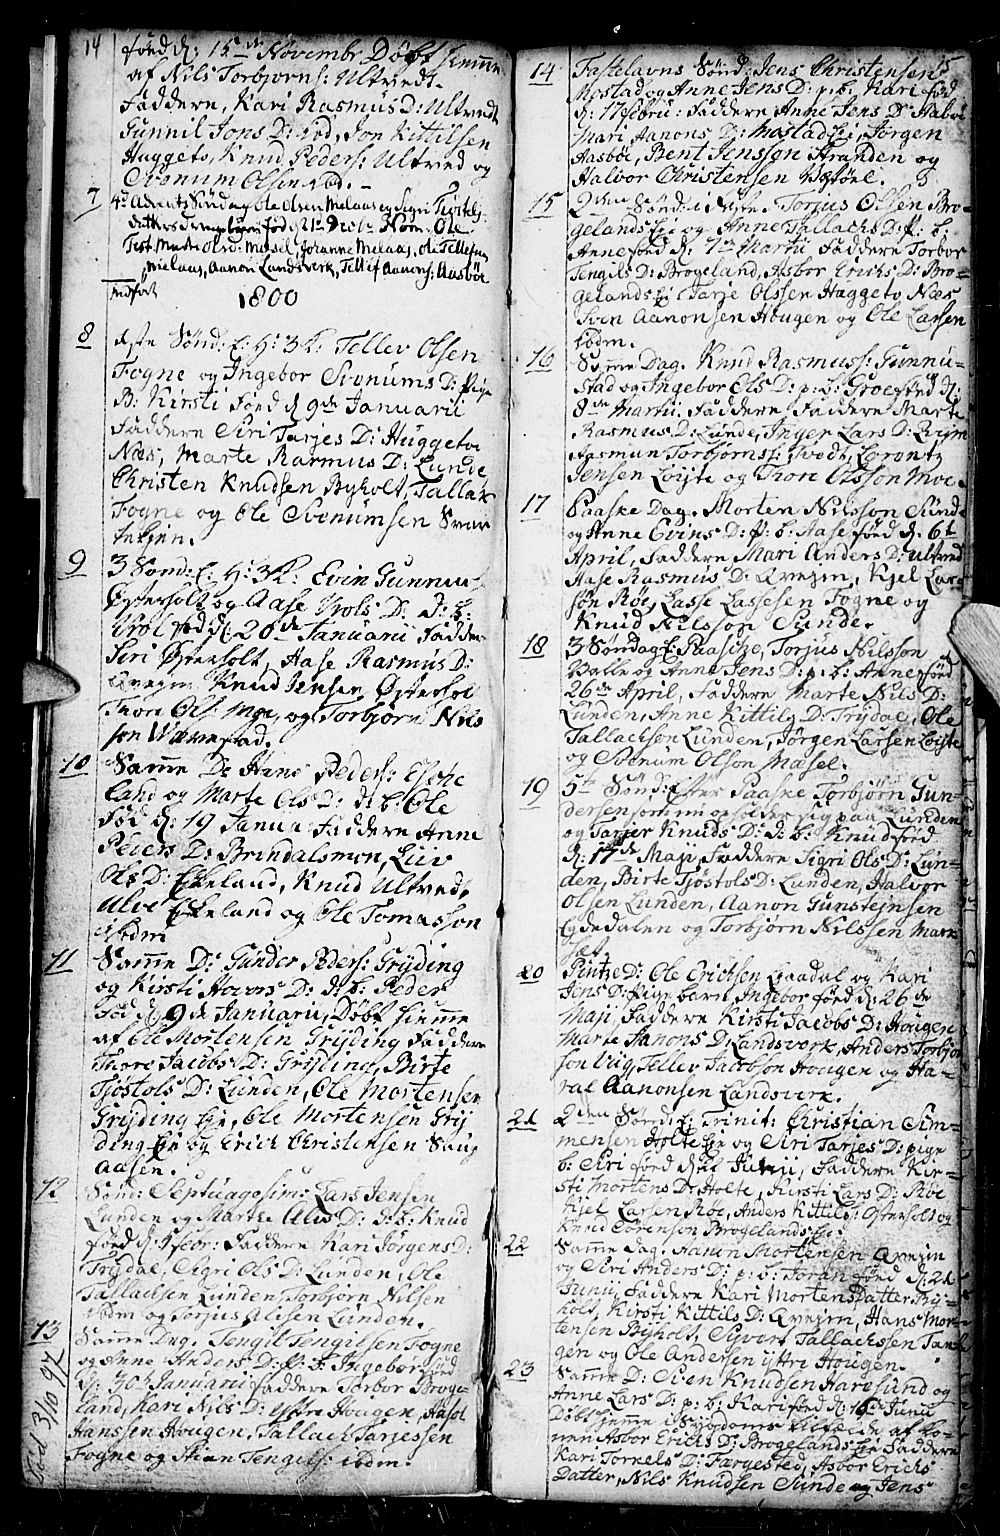 14
föed d: 15de Novembr Döbt hiemme
af Nils Torbjorns: Ultvedt.
Faddere, Kari Rasmus D: Ultvedt
Gunnil Jons D: ibd, Jon Kittilsen
Huggeto, Knud Peders: Ultved og
Svonum Olsen ibd.
7
4de Advents Söndag Ole Olsen Melaas og Sigri
datter föed d 21de Decbr Nom: Ole
Test: Marte Olsd: Mæsel, Johanne Melaas, Ole Tellefsen
Mielaas, Aanon Landsverk, Tellef Aanons: Aasböe
Indfört
1800
8
1ste Sönd: E: H: 3 K: Tellev Olsen
Fogne og Ingebor Svonums D: Pige
B: Kirsti Föed d 9de Januarii
Faddere Siri Tarjes D: Huggeto
Næs, Marte Rasmus D: Lunde
Christen Knudsen Byholt, Tallak
Fogne og Ole Svonumsen Svar
tekjen.
9
3 Sönd: E: H: 3 K: Evin Gunnu
Østerholt og Aase Vrols D: D: b:
Vrol föd d: 20de Januarii Fadder
Siri Østerholt, Aase Rasmus D:
Qvejm Knud Jensen Østerhol
Thore Ols: Moe, og Torbjörn Nils
son Wævestad.
10
Samme D: Hans Peders: Esche
land og Marte Ols D: d: b: Ole
Föd d: 19 Janua: Faddere Anne
Peders D: Brendalsmon, Liiv
Ols D: Eskeland, Knud Ultved,
Ulve Eskeland og Ole Tomasson
ibdm
11
Samme D: Gunder Peders: Gryding
og Kirsti Hovors D: d: b: Peder
Föd d: 9de Januarii, Döbt hiemme
af Ole Mortensen Gryding Faddere
Thore Jacobs D: Gryding, Birte
Tjöstols D: Lunden, Ole Mortensen
Gryding Eje, Ole Mortensen Gry
ding Eje og Erich Christensen Saug
aasen.
12
Sönd: Septuagesim: Lars Jensen
Lunden og Marthe Alis D: d: b: Knud
föed d: 1 febr: Faddere Kari Jörgens D:
Trydal, Sigri Ols D: Lunden, Ole
Tallachsen Lunden, Torbjörn Nilsen
ibdm og Torjus Alisen Lunden.
13
Samme Dag. Tengil Tengilsen Fogne
og Anne Anders D: P: b: Ingebor föed
d: 30te Januarii Faddere Torbor Broge
land, Kari Nils D: Østre Hougen, Hasol
Hanssen Hougen, Tallach Tarjessen
Fogne og Stian Tengils: ibdm.
död 3/10 97
15
14
Fastelavns Sönd: Jens Christensen
Mostad og Anne Jens D: p. b. Kari föd
d: 17 febru: Faddere Anne Jens D:
Mari Aanons D: Mostad Eje, Jörgen
Aasböe, Bent Jensson Stranden og
Halvor Christensen Vestöel.
15
2den Sönd: i Faste. Torjus Olsen Bro-
gelands Eje og Anne Tallachs D: p: b:
Anne föed d: 7de Martii Faddere Torbor
Tengils D: Brogeland, Asbor Erichs D: Bro-
gelands Ei Tarje Olssen Huggeto Næs
Sven Aanonsen Hougen og Ole Larsen
ibdm.
16
Samme Dag. Knud Rasmuss: Gunnu-
stad og Ingebor Ols D: p: b: Groe föed d:
8de Martii: Faddere, Faddere Marte
Rasmus D: Lunde, Inger Lars D: Qvejm
Rasmus Torbjörns: Tvedt, Lorentz
Jensen Löyte og Thore Olsson Moe.
17
Paaske Dag. Morten Nilsson Sunde
og Anne Evins D: p: b: Aase föed d: 6te
April, Faddere Mari Anders D: Ultved
Aase Rasmus D: Qvejm, Kjel Lars
sön Röe, Lasse Lassesen Fogne og
Knud Nilsson Sunde.
18
3 Söndag E: Paaske, Torjus Nilsson
Valle og Anne Jens D: p: b: Anne föed
26de April, Faddere Marte Nils D:
Lunden, Anne Kittils D: Trydal, Ole
Tallackson Lunden, Jörgen Larsen Löite
og Svonum Olson Mæsel.
19
5te Sönd: Efter Paaske Torbjörn Gun-
dersen som nu opholder sig paa Lunden
og Tarjer Knuds D: d: b: Knud föed
d: 17de Maji, Faddere Sigri Ols D: Lun-
den, Birte Tjöstols D: Lunden, Halvor
Olsen Lunden, Aanon Gunstejnsen
Egdedalen og Torbjörn Nilssen Mark
set.
20
Pintze D: Ole Erichsen Eraadal og Kari
Jens D: Pige barn, Ingebor föed d: 26de
Maji, Faddere Kirsti Jacobs D: Hougen
Marte Aanons D: Landsverk, Anders Torbjön
son Viig, Tellev Jacobson Hougen og Ha-
ral Aanonsen Landsverk.
21
2den Sönd: E: Trinit: Christian Sim-
mensen Holte Eje og Siri Tarjes D: pige
b: Siri föed d: 22 Junii, Faddere Kir-
sti Mortens D: Holte, Kirsti Lars D: Röe
Kjel Larsen Röe, Anders Kittils: Osterholt og
Knud Sörenson Brogelands Eje.
22
Samme dag. Aanen Mortensen Qvejm
og Siri Anders D: p: b: Joran föed d: 21
Junii, Faddere Kari Mortens Datter By-
hold, Kirsti Kittils D: Qvejm, Hans Mor-
tensen Byholt, Syvert Tallachssen Tan-
gen og Ole Andersen Østre Hougen.
23
Samme D: Sven Knudsen Haresund og
Anne Lars D: p: b: Kari föed d: 16de Junii
Döbt hiemme i Jordmors tilfælde af Ko-
nen Asbor Erichs D: Brogelands Eje Faddere
Kari Torkels D: Færgested, Asbor Erichs
Datter, Nils Knudsen Sunde og Jens